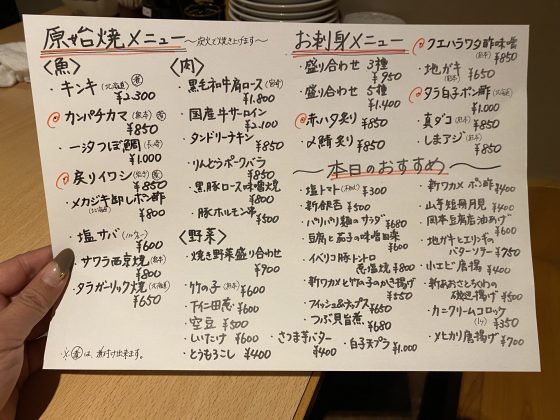 原始焼メニュー 〜炭火で焼き上げます〜
〈魚〉
・キンキ(北海道) 煮
¥2,300
・カンパチカマ(熊本) 煮
¥850
・一汐つぼ鯛(長崎)
¥1,000
・炙りイワシ 煮
¥850
・メカジキ卸しポン酢
(北海道) ¥800
・塩サバ(ノルウェー)
¥600
・サワラ西京焼(熊本)
¥800
・タラガーリック焼(北海道)
¥650
※煮は、煮付け出来ます。
〈肉〉
・黒毛和牛肩ロース(宮崎)
¥1,800
・国産牛サーロイン
¥2,100
・タンドリーチキン
¥850
・りんどうポークバラ
¥850
・黒豚ロース味噌焼
¥800
・豚ホルモン串
¥500
〈野菜〉
・焼き野菜盛り合わせ
¥900
・竹の子(熊本) ¥600
・下仁田葱 ¥600
・空豆 ¥500
・しいたけ ¥600
・とうもろこし ¥400
・さつま芋バター
¥400
お刺身メニュー
・盛り合わせ 3種
¥950
・盛り合わせ 5種
¥1,400
・赤ハタ炙り ¥850
・〆鯖炙り ¥850
・クエハラワタ酢味噌
¥850
・地ガキ(熊本) ¥650
・タラ白子ポン酢(北海道)
¥1,000
・真ダコ(熊本) ¥850
・しまアジ(熊本) ¥850
〜本日のおすすめ〜
・塩トマト ¥300
・新銀杏 ¥500
・パリパリ麺のサラダ
¥680
・豆腐と茄子の味噌田楽
¥600
・イベリコ豚トントロ
葱塩焼 ¥800
・新ワカメと竹の子のかき揚げ
¥550
・フィッシュ&チップス ¥650
・つぶ貝旨煮 ¥680
・白子天プラ ¥1,000
・新ワカメ ポン酢 ¥400
・山芋短冊月見 ¥400
・岡本豆腐店油あげ
¥600
・地ガキとエリンギの
バターソテー ¥750
・小エビ唐揚 ¥400
・新あおさとちくわの
磯辺揚げ ¥500
・カニクリームコロッケ
(1ケ) ¥350
・メヒカリ唐揚 ¥700